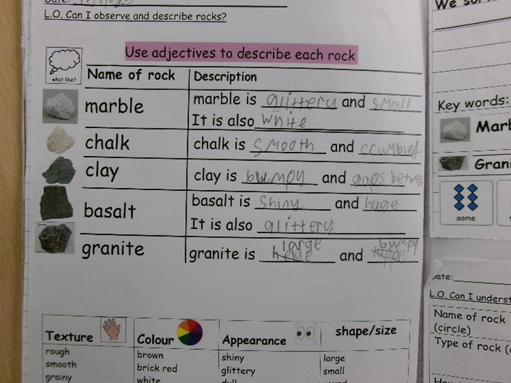 Date:
L.O. Can I observe and describe rocks?
Use adjectives to describe each rock
what like?
Name of rock Description
marble marble is glittery and small
It is also white
chalk chalk is smooth and
clay clay is bumpy and gaps
basalt basalt is shiny and huge
It is also glittery
granite granite is large and bumpy
Texture Colour Appearance shape/size
rough brown shiny large
smooth brick red glittery small
grainy white dull
We
Key words:
Mar
Grani
same
ate:
L.O. Can I underst
Name of rock
(circle)
Type of rock